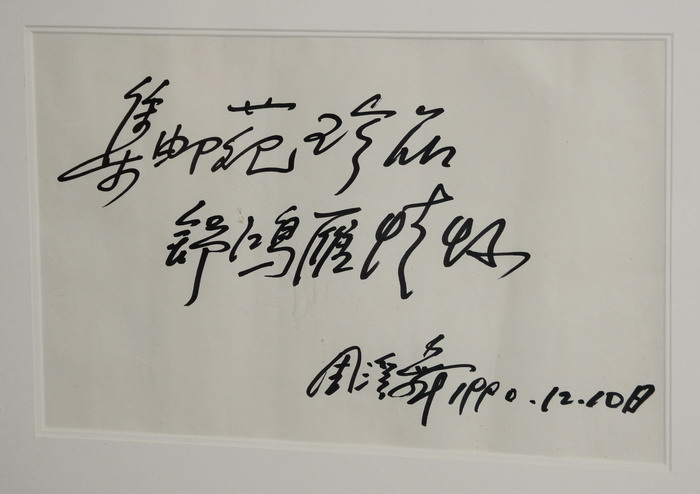 集邮苑珍品
舒鸿雁情怀
周溪舞 1990.12.10日